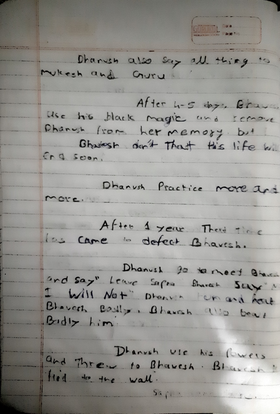 Dhanush also say all thing to
Mukesh and Guru
After 4-5 days
use his black magic and remove
Dhanush from her memory but
Bhavesh don't that this life
end soon.
Dhanush Practice more and
more.
After 1 year That time
came to defect Bhavesh.
Dhanush go to meet
and say" Leave Sapna Bhavesh Say"
I Will Not" Dhanush and
Bhavesh Badly. Bhavesh also beat
Badly him
Dhanush use his Powers
and Threw to Bhavesh. Bhavesh
to the wall.